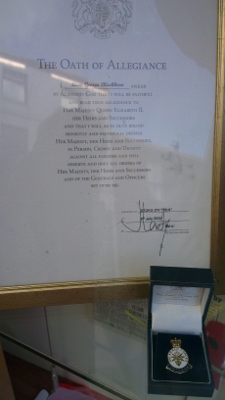 THE OATH OF ALLEGIANCE
I, SWEAR
BY ALMIGHTY GOD THAT I WILL BE FAITHFUL
AND BEAR TRUE ALLEGIANCE TO
HER MAJESTY QUEEN ELIZABETH II,
HER HEIRS AND SUCCESSORS
AND THAT I WILL AS IN DUTY BOUND
HONESTLY AND FAITHFULLY DEFEND
HER MAJESTY, HER HEIRS AND SUCCESSORS
IN PERSON, CROWN AND DIGNITY
AGAINST ALL ENEMIES AND WILL
OBSERVE AND OBEY ALL ORDERS OF
HER MAJESTY, HER HEIRS AND SUCCESSORS
AND OF THE GENERALS AND OFFICERS
SET OVER ME.